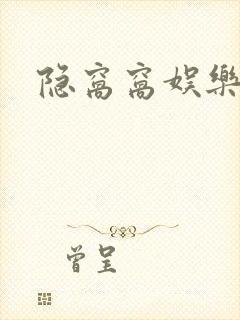 隐窝窝娱樂
曾呈